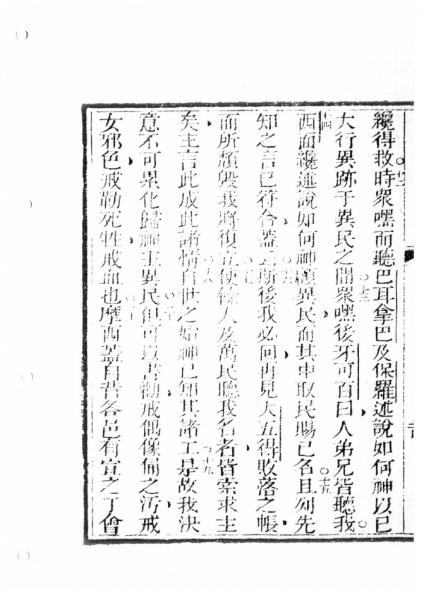 纔得救時眾嘿而聽巴耳拿巴及保羅述說如何神以己
大行異跡于異民之間眾嘿後牙可百曰人弟兄皆聽我
西面纔述說如何神顧異民而其中取民賜己名且列先
知之言已符合蓋云斯後我必回再見大五得敗落之帳
而所頹毀我將復立使餘人及萬民聽我名者皆索求主
矣主言此成此諸情自世之始神已知其諸工是故我決
意不可累化歸神主異民但可以書勸戒偶像之污戒
女邪色戒勒死牲戒血也摩西蓋自昔各邑有宣之于會